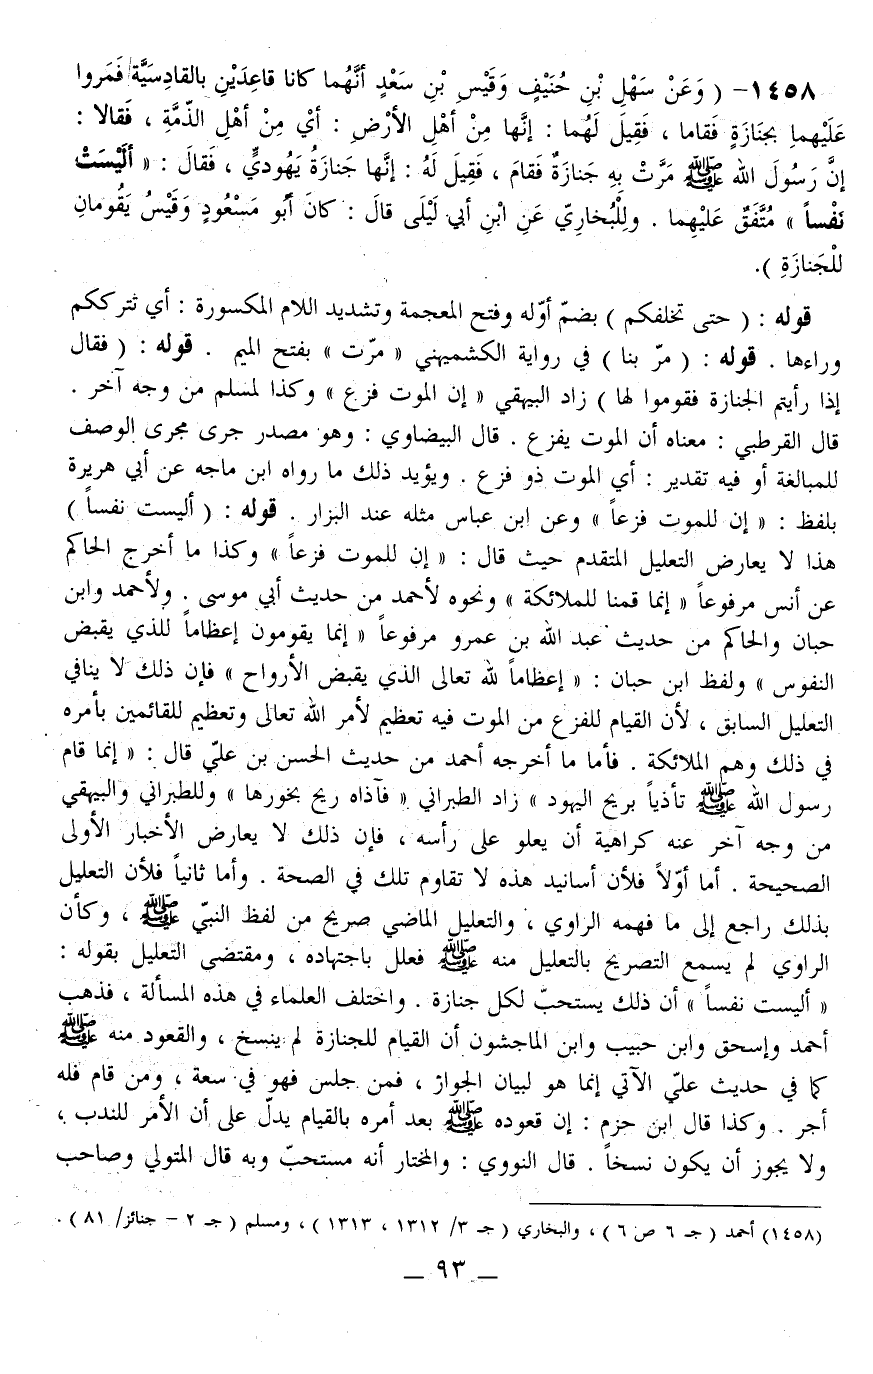 ١٤٥٨- ( وَعَنْ سَهْلِ بْنِ حُنَيْفٍ وَقَيْسِ بْنِ سَعْدٍ أَنَّهُما كانا قاعِدَيْنِ بالقادِسيَّةِ فَمَروا
عَلَيْهِما بِجَنازَةٍ فَقاما ، فَقِيلَ لَهُما : إنَّها مِنْ أهْلِ الأرْضِ : أيْ مِنْ أهْلِ الذّمَّةِ ، فَقالا :
إنَّ رَسُولَ الله ﷺ مَرَّتْ بِهِ جَنازَةٌ فَقامَ ، فَقِيلَ لَهُ : إنَّها جَنازَةُ يَهُوديٍّ ، فَقالَ : « ألَيْسَتْ
نَفْساً » مُتَّفَقٌ عَلَيْهِما . ولِلْبُخاريّ عَنِ ابْنِ أبي لَيْلَى قالَ : كانَ أبُو مَسْعُودٍ وَقَيْسُ يَقُومانِ
للْجَنازَةِ ).
قوله : ( حتى تخلفكم ) بضمّ أوّله وفتح المعجمة وتشديد اللام المكسورة : أي تترككم
وراءها . قوله : ( مرّ بنا ) في رواية الكشميهني « مرّت » بفتح الميم . قوله : ( فقال
إذا رأيتم الجنازة فقوموا لها ) زاد البيهقي « إن الموت فزع » وكذا لمسلم من وجه آخر .
قال القرطبي : معناه أن الموت يفزع . قال البيضاوي : وهو مصدر جرى مجرى الوصف
للمبالغة أو فيه تقدير : أي الموت ذو فزع . ويؤيد ذلك ما رواه ابن ماجه عن أبي هريرة
بلفظ : « إن للموت فزعاً » وعن ابن عباس مثله عند البزار . قوله : ( أليست نفساً )
هذا لا يعارض التعليل المتقدم حيث قال : « إن للموت فزعاً » وكذا ما أخرج الحاكم
عن أنس مرفوعاً « إنما قمنا للملائكة » ونحوه لأحمد من حديث أبي موسى . ولأحمد وابن
حبان والحاكم من حديث عبد الله بن عمرو مرفوعاً « إنما يقومون إعظاماً للذي يقبض
النفوس » ولفظ ابن حبان : « إعظاماً لله تعالى الذي يقبض الأرواح » فإن ذلك لا ينافي
التعليل السابق ، لأن القيام للفزع من الموت فيه تعظيم لأمر الله تعالى وتعظيم للقائمين بأمره
في ذلك وهم الملائكة . فأما ما أخرجه أحمد من حديث الحسن بن عليّ قال : « إنما قام
رسول الله ﷺ تأذياً بريح اليهود » زاد الطبراني « فآذاه ريح بخورها » وللطبراني والبيهقي
من وجه آخر عنه كراهية أن يعلو على رأسه ، فإن ذلك لا يعارض الأخبار الأولى
الصحيحة . أما أوّلاً فلأن أسانيد هذه لا تقاوم تلك في الصحة . وأما ثانياً فلأن التعليل
بذلك راجع إلى ما فهمه الراوي ، والتعليل الماضي صريح من لفظ النبيّ ﷺ ، وكأن
الراوي لم يسمع التصريح بالتعليل منه ﷺ فعلل باجتهاده ، ومقتضى التعليل بقوله :
« أليست نفساً » أن ذلك يستحبّ لكل جنازة . واختلف العلماء في هذه المسألة ، فذهب
أحمد وإسحق وابن حبيب وابن الماجشون أن القيام للجنازة لم ينسخ ، والقعود منه ﷺ
كما في حديث عليّ الآتي إنما هو لبيان الجواز ، فمن جلس فهو في سعة ، ومن قام فله
أجر . وكذا قال ابن حزم : إن قعوده ﷺ بعد أمره بالقيام يدلّ على أن الأمر للندب ،
ولا يجوز أن يكون نسخاً . قال النووي : والمختار أنه مستحبّ وبه قال المتولي وصاحب
(١٤٥٨) أحمد ( جـ ٦ ص ٦ ) ، والبخاري ( جـ ٣/ ١٣١٢ ، ١٣١٣ ) ، ومسلم ( جـ ٢ – جنائز/ ٨١ ) .
— ٩٣ —